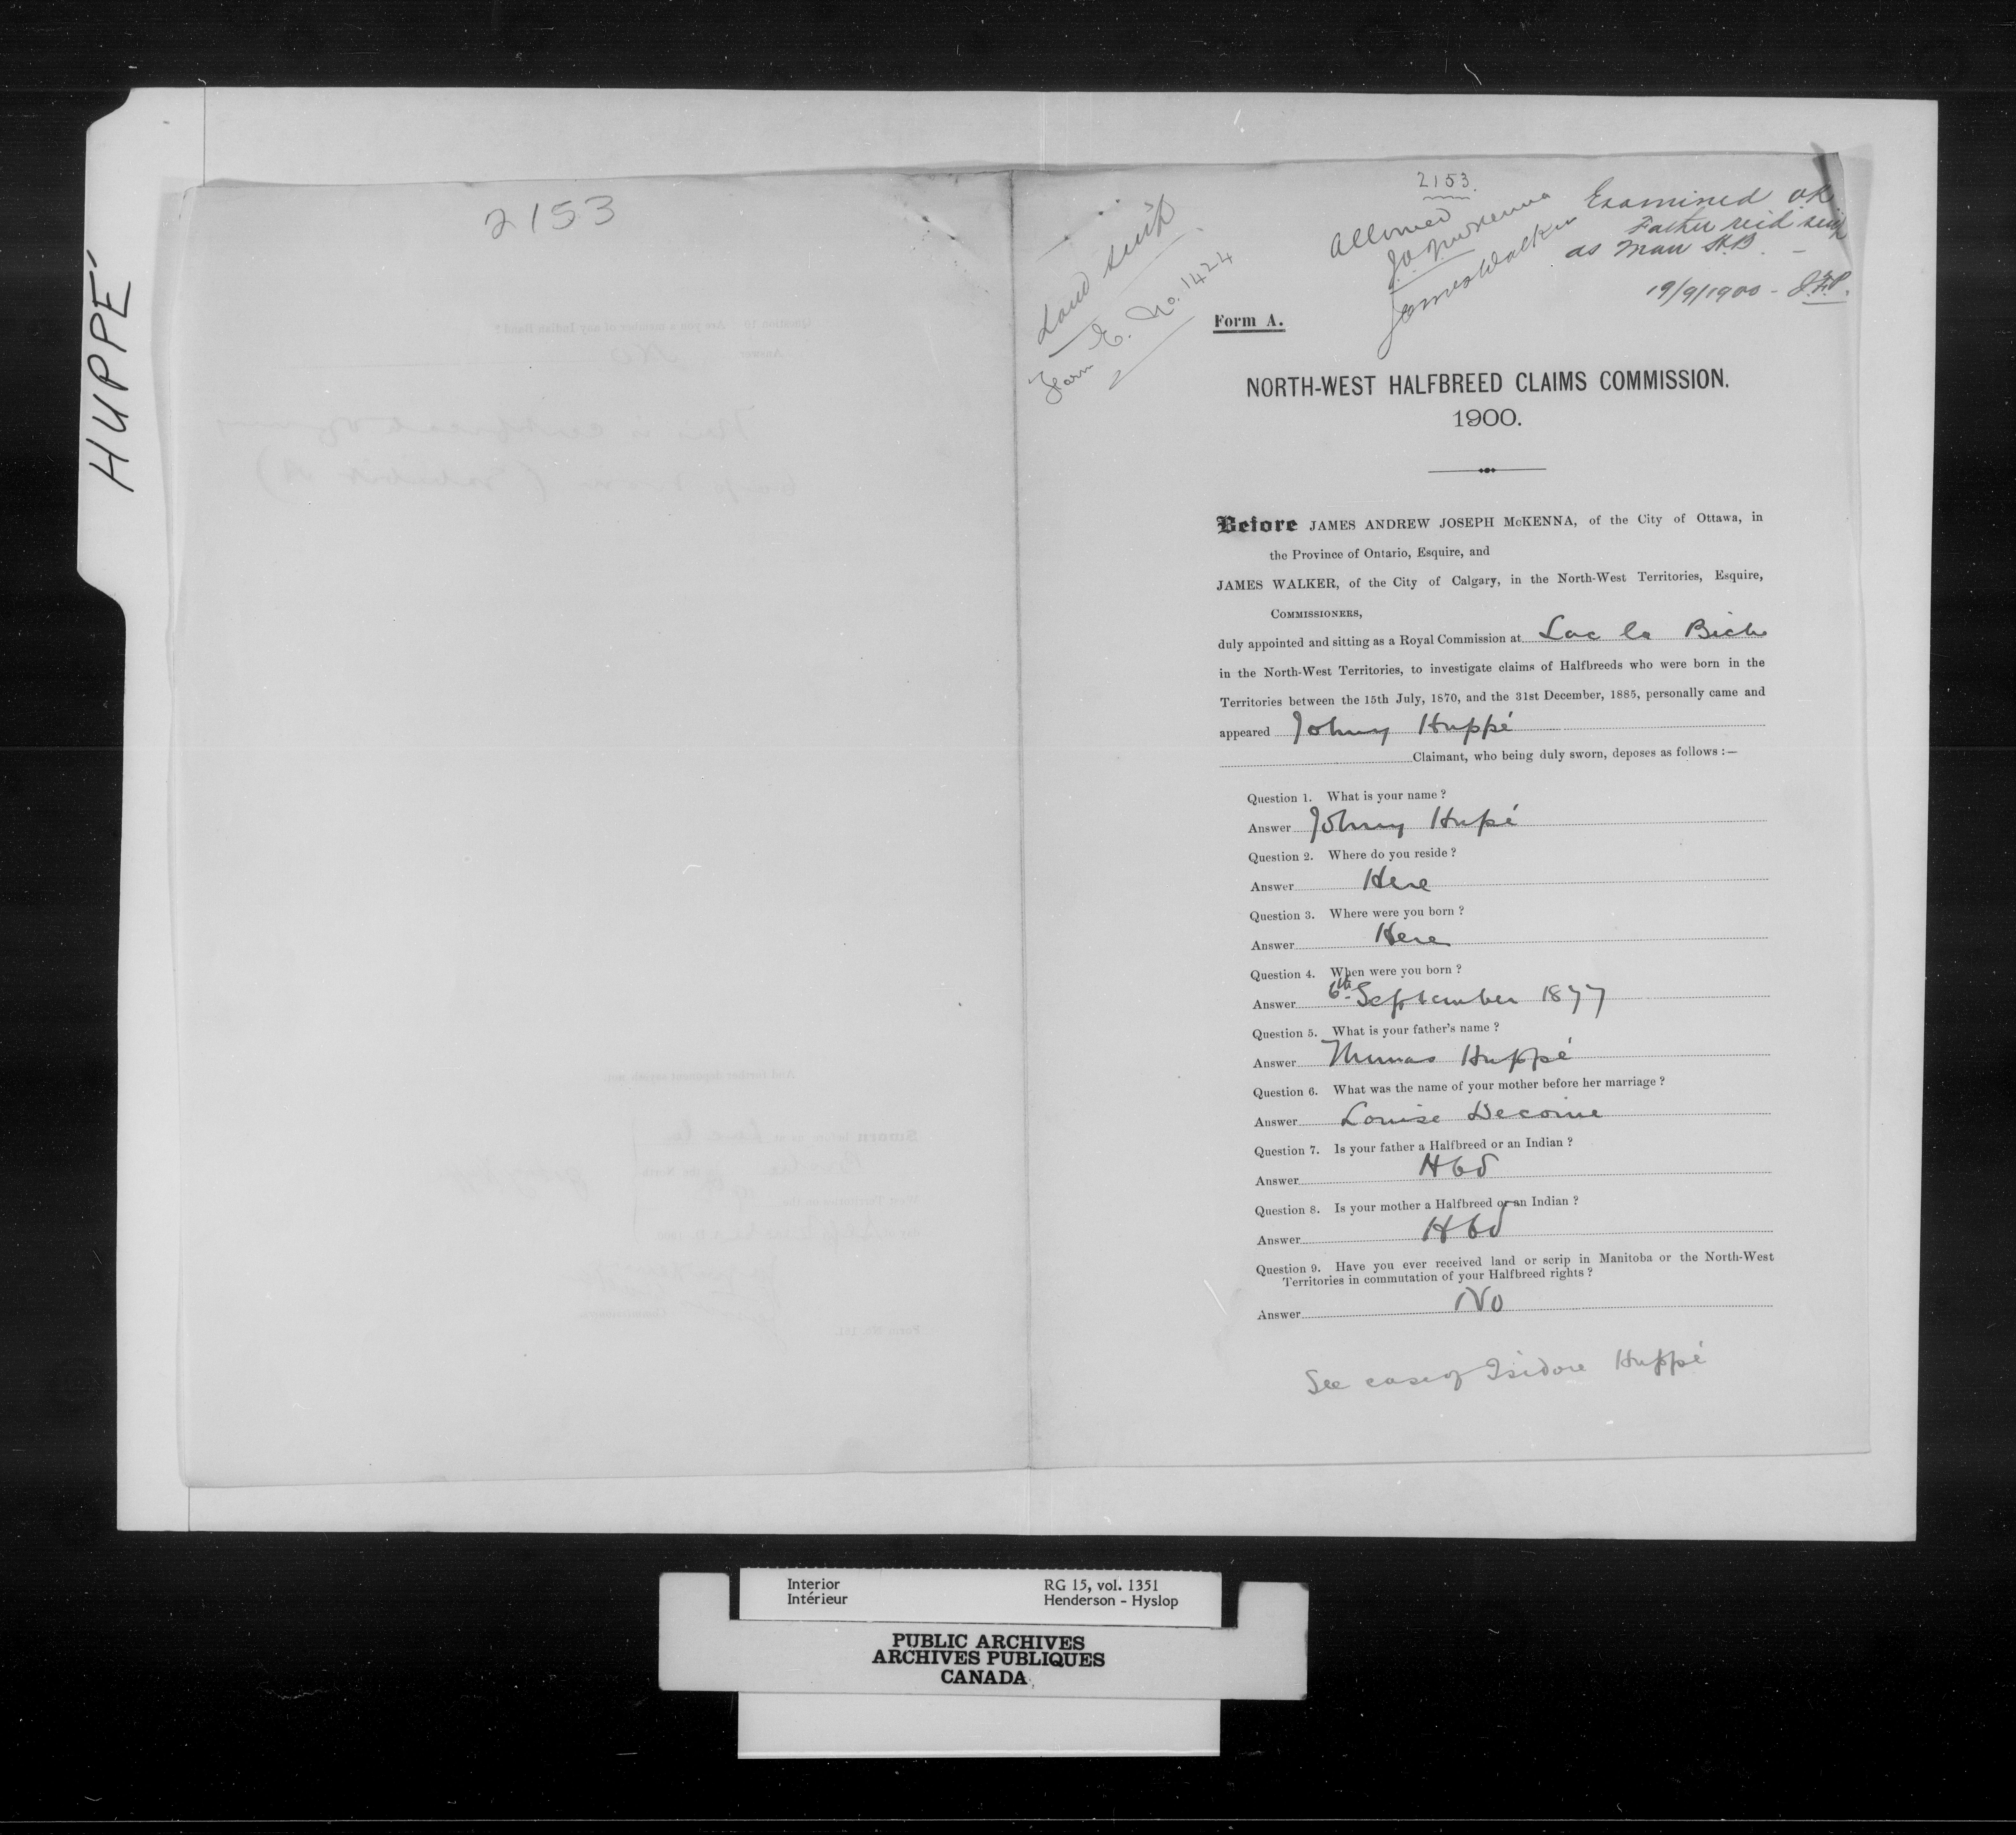 HUPPÉ
2153
Land scrip
Form E. No. 1424
2153.
Allowed
J.A.J. McKenna
James Walker
Examined ok
Father rec'd scrip
as Man H.B. –
19/9/1900 -
Form A.
NORTH-WEST HALFBREED CLAIMS COMMISSION.
1900.
Before JAMES ANDREW JOSEPH McKENNA, of the City of Ottawa, in
the Province of Ontario, Esquire, and
JAMES WALKER, of the City of Calgary, in the North-West Territories, Esquire,
COMMISSIONERS,
duly appointed and sitting as a Royal Commission at Lac la Biche
in the North-West Territories, to investigate claims of Halfbreeds who were born in the
Territories between the 15th July, 1870, and the 31st December, 1885, personally came and
appeared Johny Huppé
Claimant, who being duly sworn, deposes as follows :—
Question 1. What is your name ?
Answer Johny Hupé
Question 2. Where do you reside ?
Answer Here
Question 3. Where were you born ?
Answer Here
Question 4. When were you born ?
Answer 6th September 1877
Question 5. What is your father's name ?
Answer Thomas Huppé
Question 6. What was the name of your mother before her marriage ?
Answer Louise Decoine
Question 7. Is your father a Halfbreed or an Indian ?
Answer Hbd
Question 8. Is your mother a Halfbreed or an Indian ?
Answer Hbd
Question 9. Have you ever received land or scrip in Manitoba or the North-West
Territories in commutation of your Halfbreed rights ?
Answer No
See case of Isidore Huppé
Interior RG 15, vol. 1351
Intérieur Henderson - Hyslop
PUBLIC ARCHIVES
ARCHIVES PUBLIQUES
CANADA